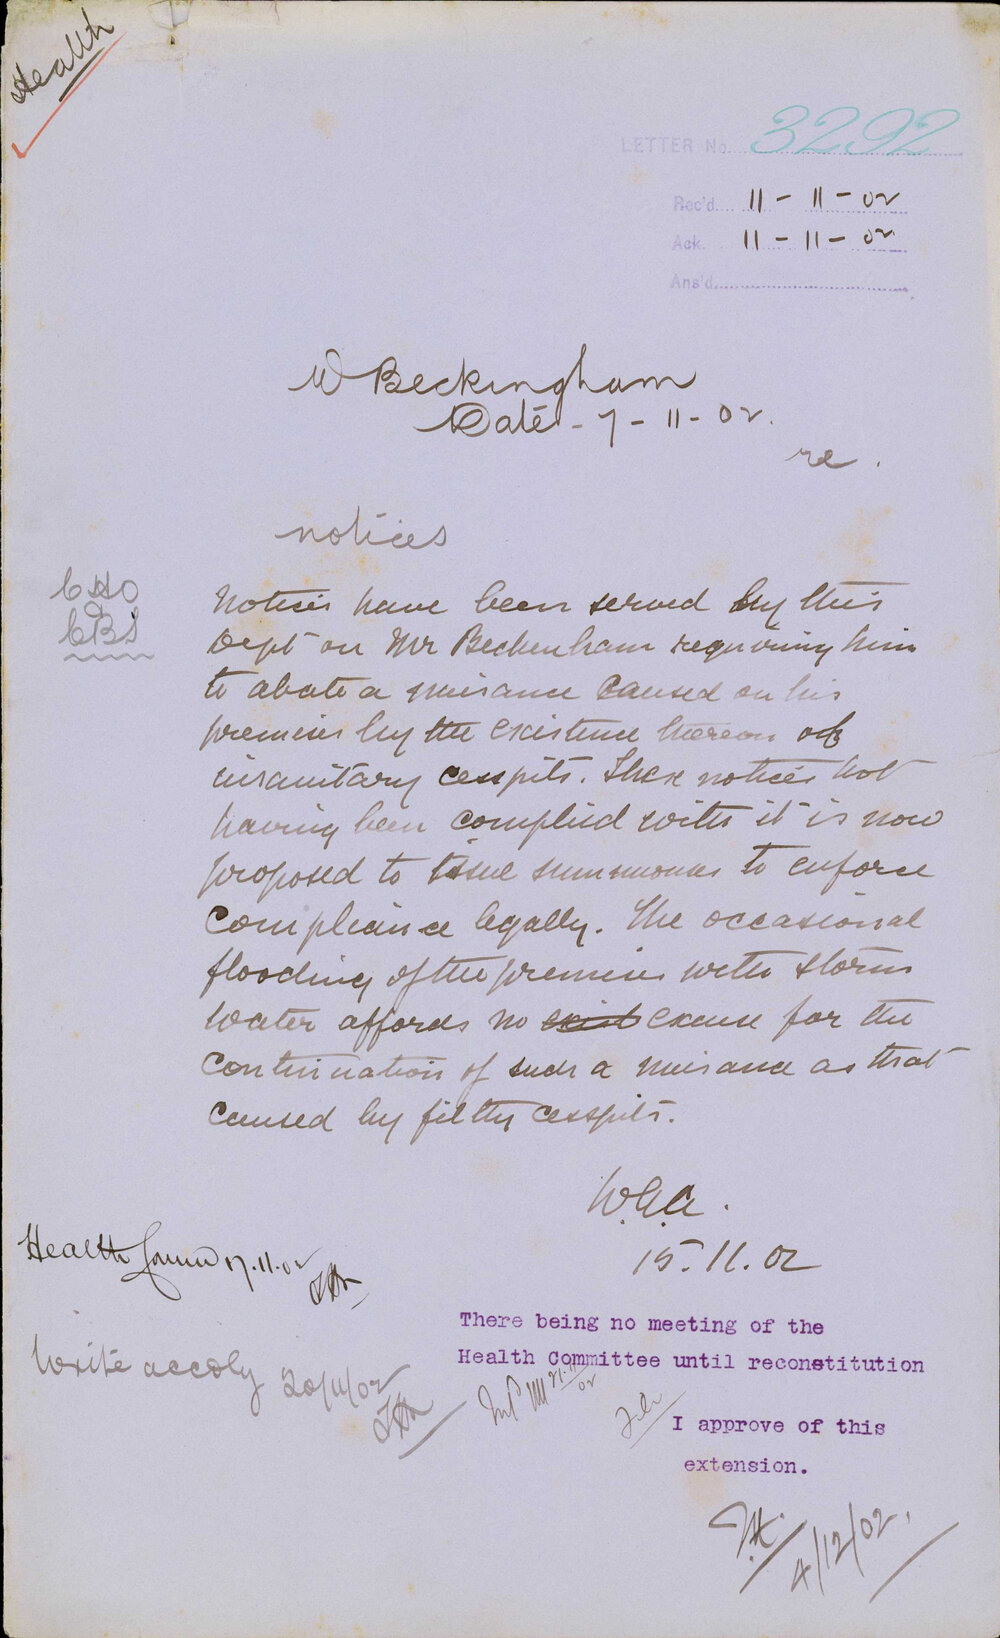 Health
LETTER No. 3292
Rec'd. 11-11-02
Ack. 11-11-02
Ans'd.
W Beckingham
Date - 7-11-02.
re.
notices
CHO
CBS
Notices have been served by this
Dept on Mr Beckenham requiring him
to abate a nuisance caused on his
premises by the existence thereon of
insanitary cesspits. These notices not
having been complied with it is now
proposed to issue summonses to enforce
compliance legally. The occasional
flooding of the premises with storm
water affords no exist excuse for the
continuation of such a nuisance as that
caused by filthy cesspits.
W.G.A.
15.11.02
Health Comm 17.11.02
Write accdly 20/11/02
There being no meeting of the
Health Committee until reconstitution
21.11.02
File
I approve of this
extension.
4/12/02.